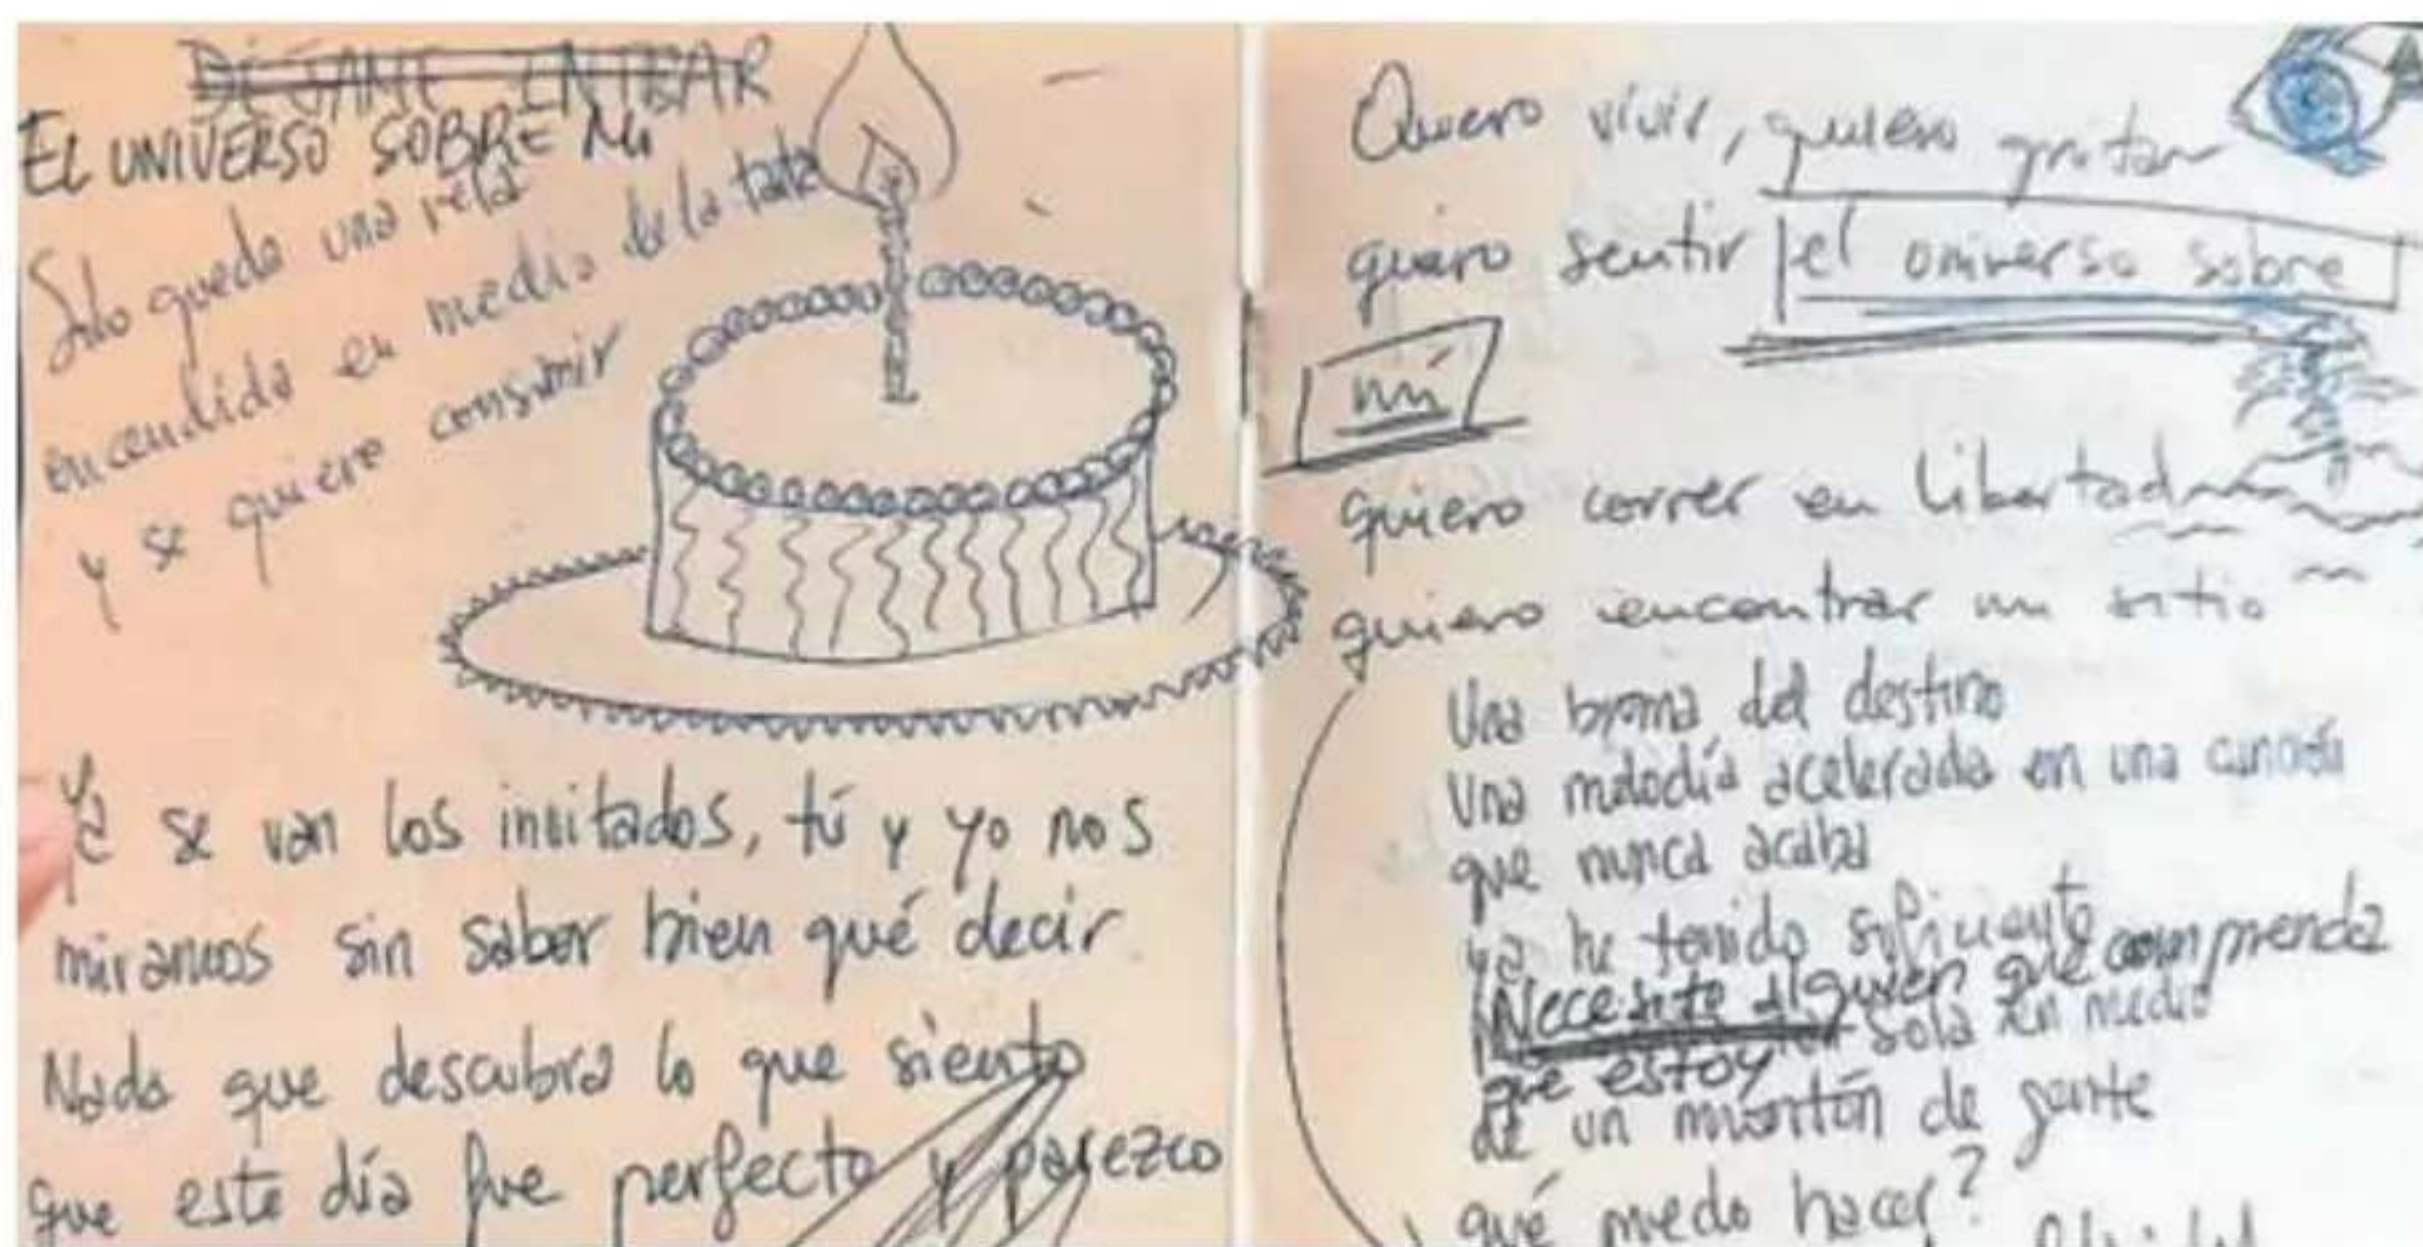 DÉJAME ENTRAR
EL UNIVERSO SOBRE Mí
Solo queda una vela
encendida en medio de la tarta
y se quiere consumir
Ya se van los invitados, tú y yo nos
miramos sin saber bien qué decir
Nada que descubra lo que siento
que este día fue perfecto y parezco
Quiero vivir, quiero gritar
quiero sentir el universo sobre
mí
quiero correr en libertad
quiero encontrar mi sitio
Una broma del destino
Una melodía acelerada en una canción
que nunca acaba
ya he tenido suficiente
Necesito alguien que comprenda
que estoy sola en medio
de un montón de gente
qué puedo hacer?